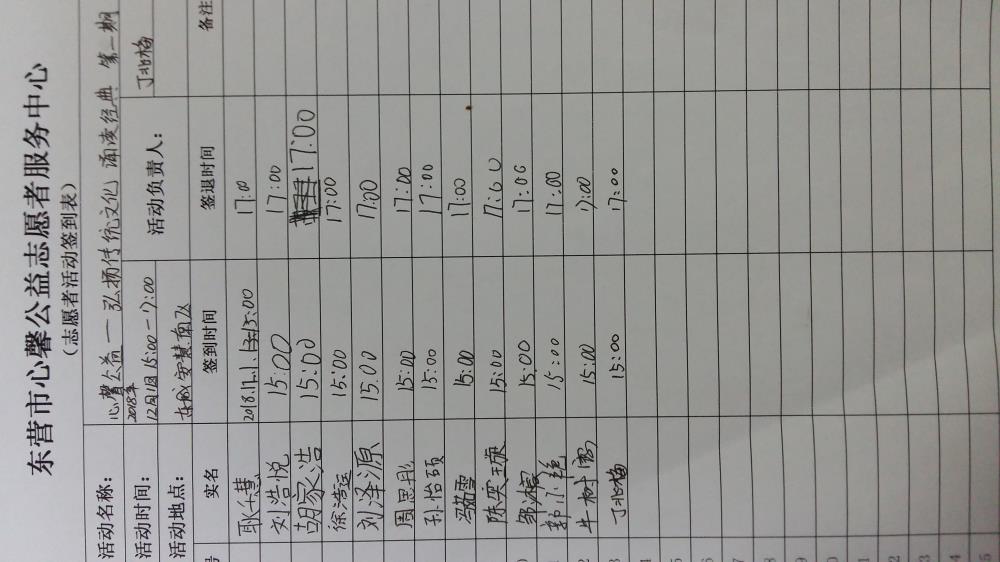 东营市心馨公益志愿者服务中心
（志愿者活动签到表）
活动名称： 心馨公益 — 弘扬传统文化 诵读经典 第一期
活动时间： 2018年12月1日 15:00-17:00 活动负责人： 丁北梅
活动地点：
号 实名 签到时间 签退时间 备注
耿千慧 15:00 17:00
刘浩悦 15:00 17:00
胡家浩 15:00 17:00
徐浩廷 15:00 17:00
刘泽源 15:00 17:00
周思彤 15:00 17:00
孙怡颐 15:00 17:00
冯茹雪 15:00 17:00
陈奕璇 15:00 17:00
0 15:00 17:00
1 15:00 17:00
2 牛树 15:00 17:00
3 丁北梅 15:00 17:00
4
5
6
7
8
9
0
1
2
3
4
5